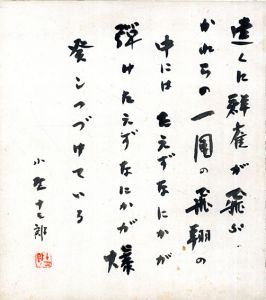 遠くに鮮奮が飛ぶ
かれらの一団の飛翔の
中には たえずなにかが
弾けたえずなにかが 爆
発しつづけている
小野十三郎